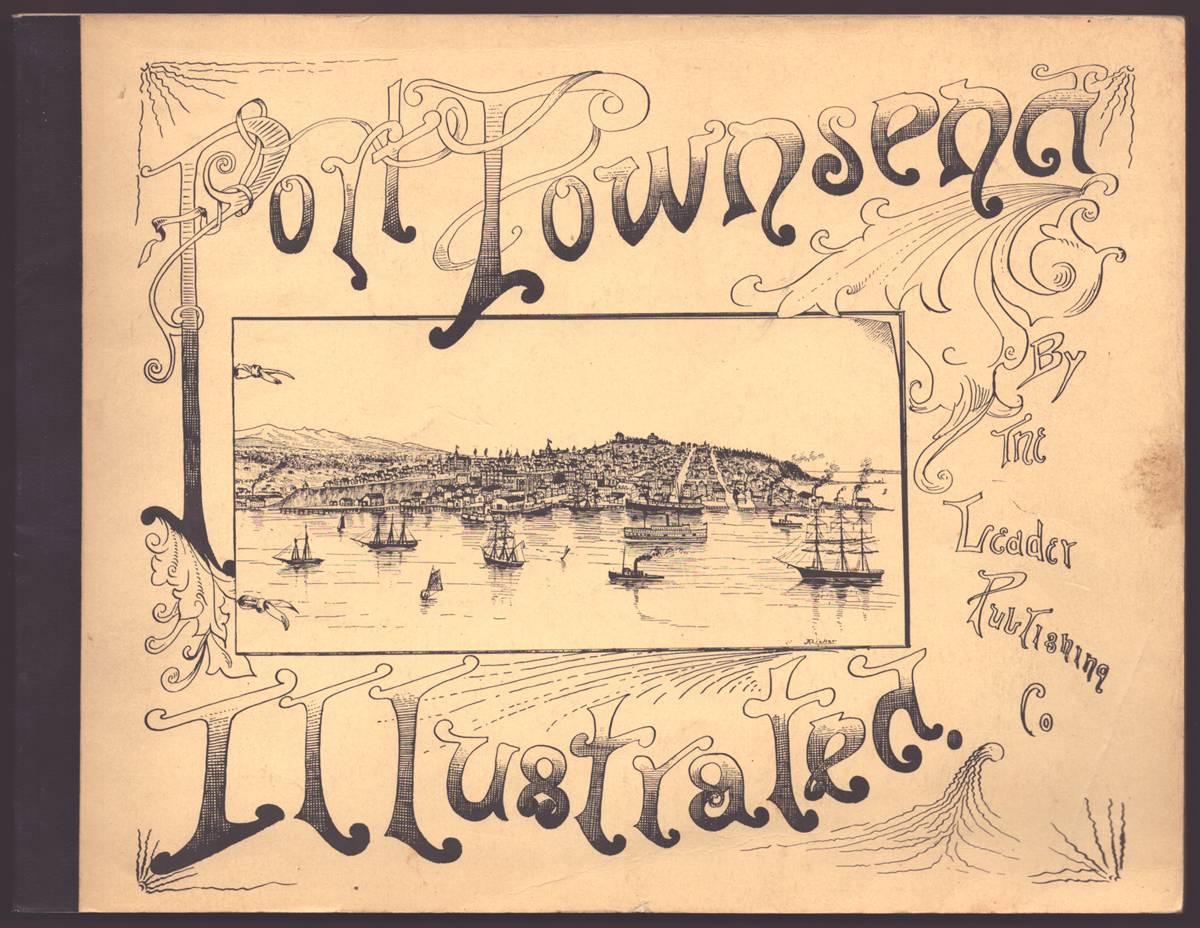 Port Townsend
By
The
Leader
Publishing
Co
Illustrated.